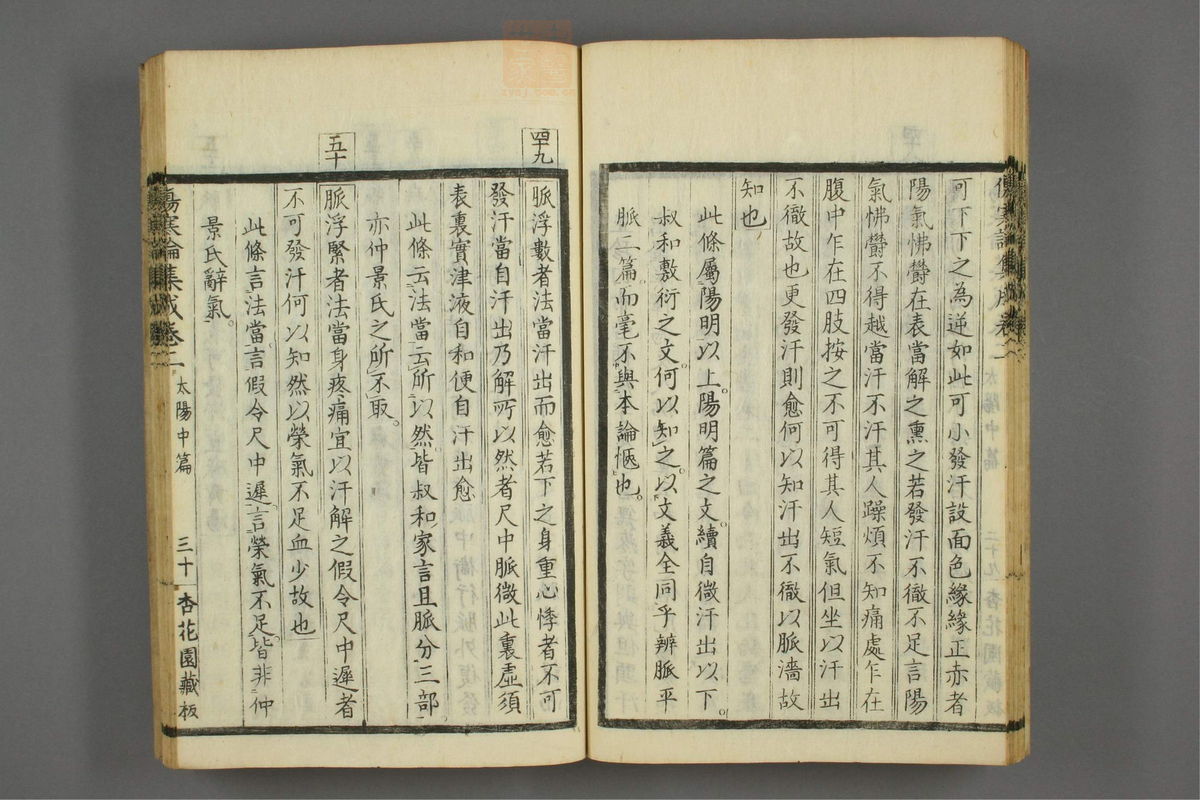 可下下之為逆如此可小發汗設面色緣緣正赤者
陽氣怫鬱在表當解之熏之若發汗不徹不足言陽
氣怫鬱不得越當汗不汗其人躁煩不知痛處乍在
腹中乍在四肢按之不可得其人短氣但坐以汗出
不徹故也更發汗則愈何以知汗出不徹以脈濇故
知也
此條屬陽明以上。陽明篇之文。續自微汗出以下。
叔和敷衍之文。何以知之。以文義全同乎辨脈平
脈二篇。而毫不與本論愜也。
四十九
脈浮數者法當汗出而愈若下之身重心悸者不可
發汗當自汗出乃解所以然者尺中脈微此裏虛須
表裏實津液自和便自汗出愈
此條云法當。云所以然。皆叔和家言且脈分三部。
亦仲景氏之所不取。
五十
脈浮緊者法當身疼痛宜以汗解之假令尺中遲者
不可發汗何以知然以榮氣不足血少故也
此條言法當。言假令尺中遲。言榮氣不足。皆非仲
景氏辭氣。
傷寒論集成卷二 太陽中篇 三十 杏花園藏板